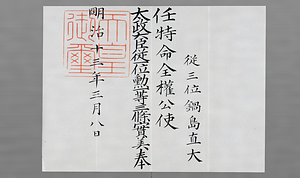 從三位鍋島直大
任特命全權公使
太政大臣從一位勲一等三條實美奉
明治十三年三月八日
天皇
御璽